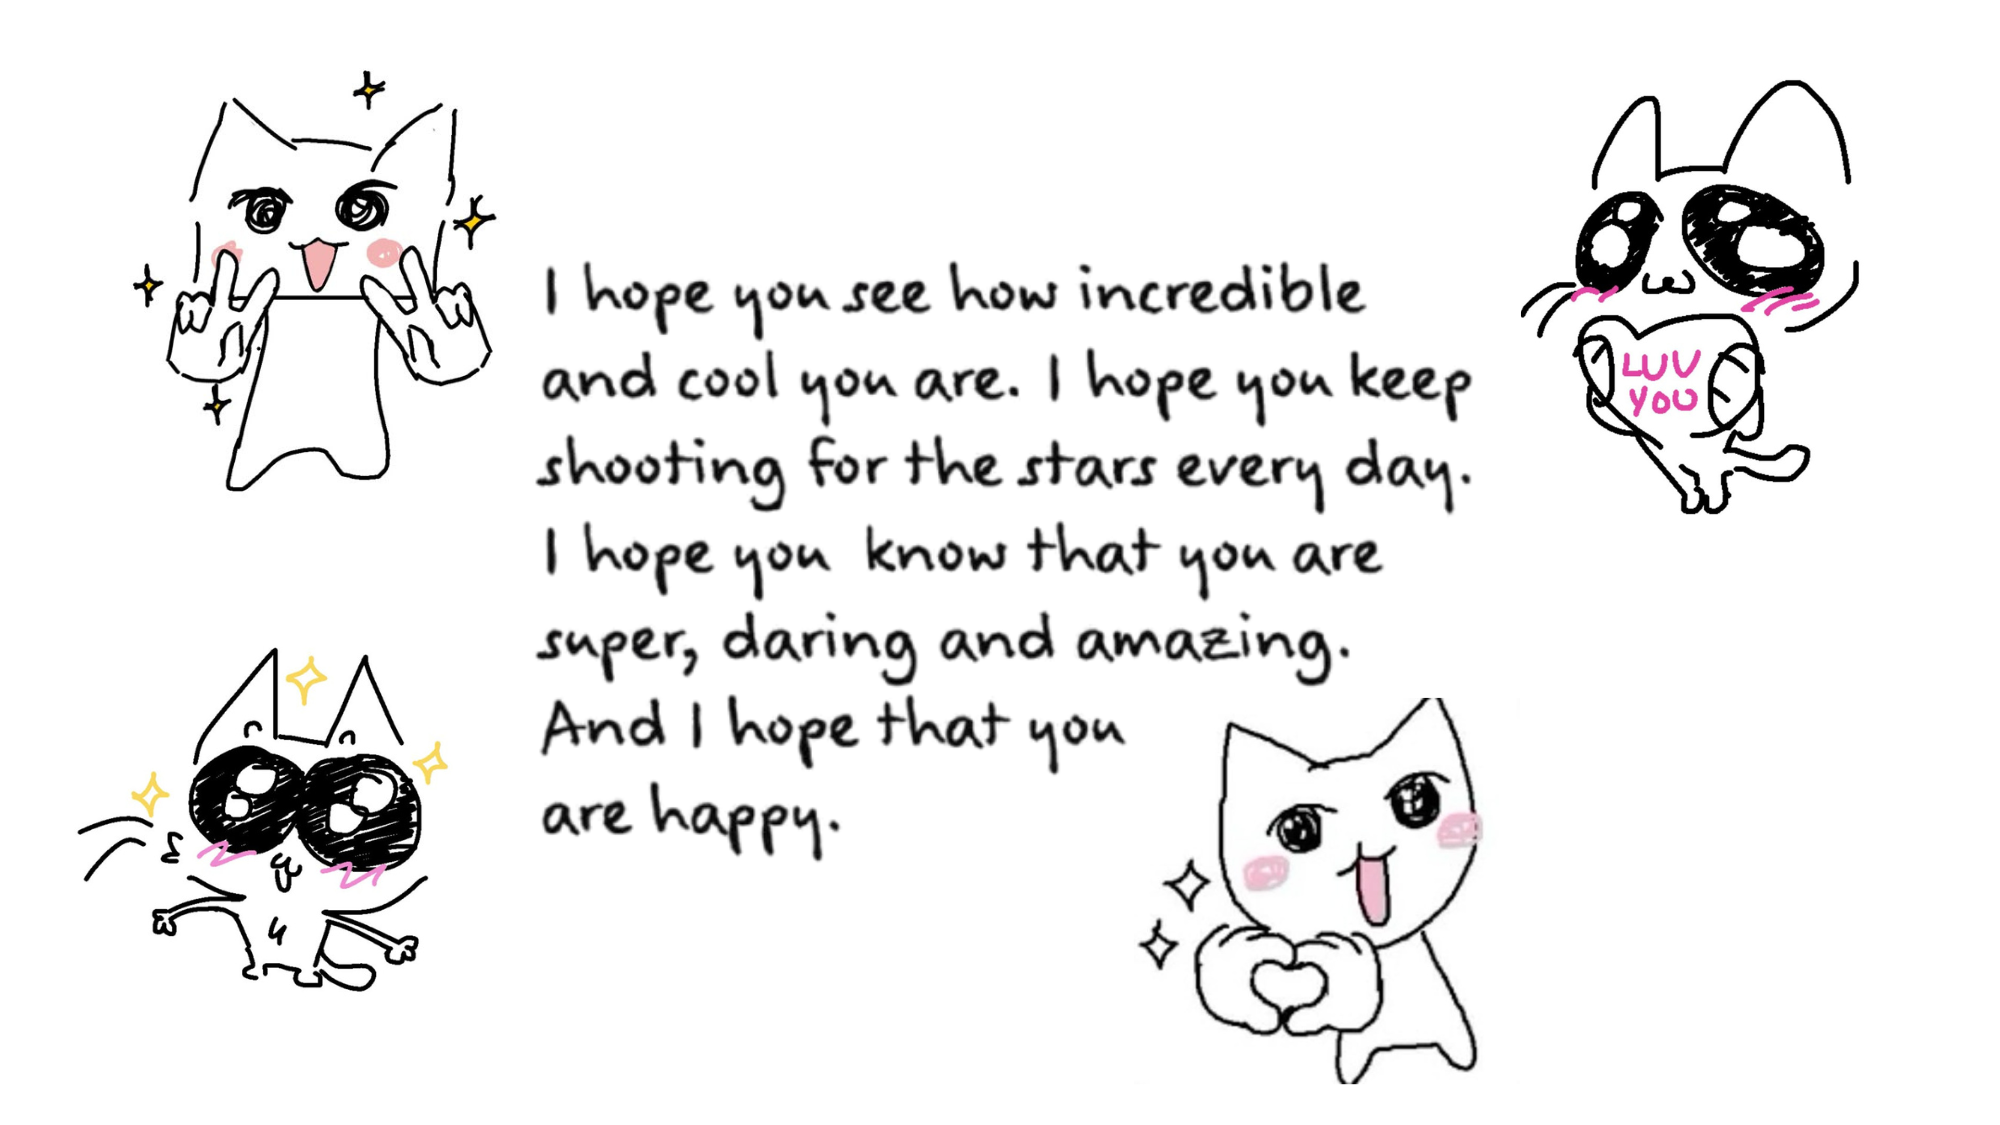 I hope you see how incredible
and cool you are. I hope you keep
shooting for the stars every day.
I hope you know that you are
super, daring and amazing.
And I hope that you
are happy.
LUV
YOU